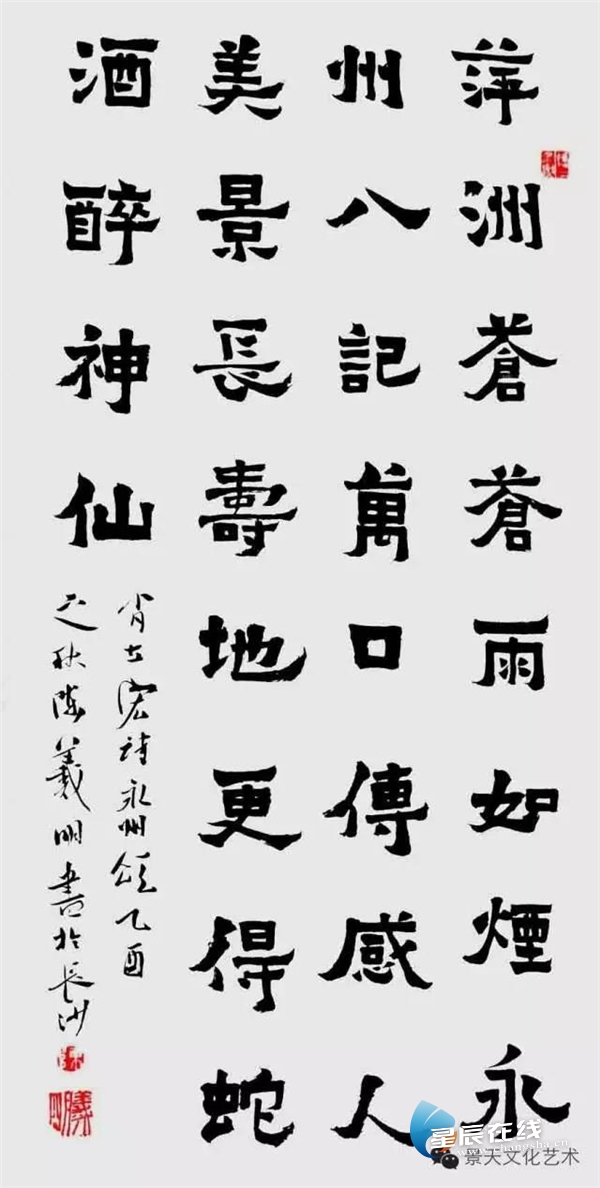 萍洲蒼蒼雨如煙永
州八記萬口傳感人
美景長壽地更得蛇
酒醉神仙
宏詩永州頌乙酉
之秋陳羲明書於長沙
星辰在线
景天文化艺术